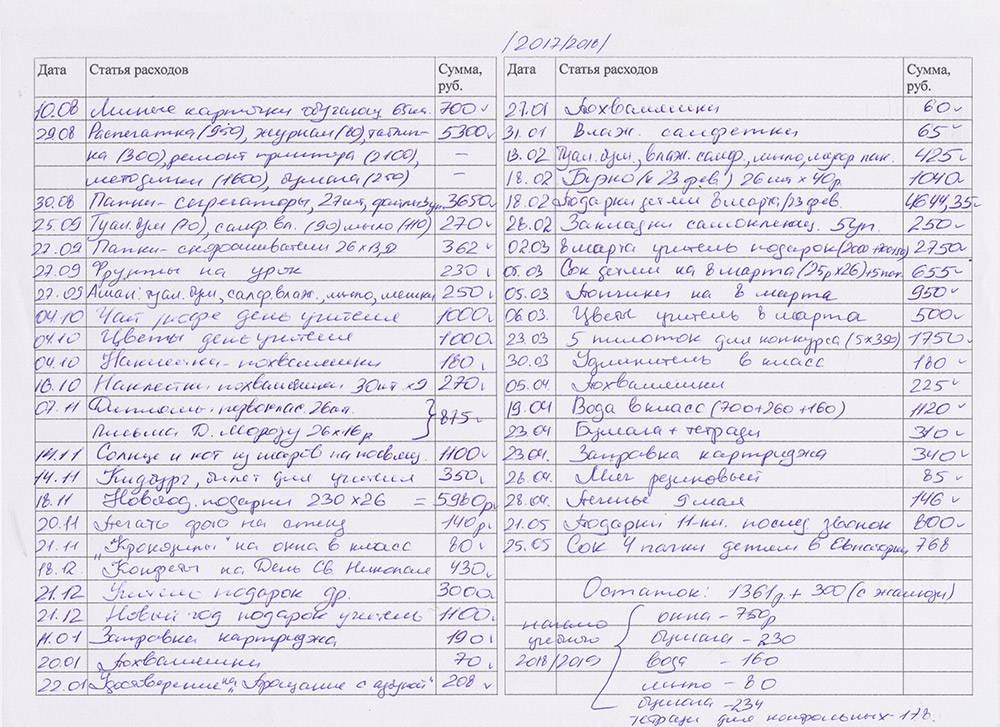 /2017/2018/
Дата Статья расходов Сумма, руб.
10.08 Личные карточки обучающ. 65шт. 700
29.08 Распечатка (950), журнал (80), таблич- 5300
ка (300), ремонт принтера (2100), –
методички (1600), бумага (250) –
30.08 Папки-сегрегаторы, 27шт, файлы 3уп. 3650
25.09 Туал. бум (70), салф. вл. (90) мыло (110) 270
27.09 Папки-скоросшиватели 26х13, 362
27.09 Фрукты на урок 230
27.09 туал. бум., салф. влаж., мыло, мешки 250
04.10 Чай, кофе день учителя 1000
04.10 Цветы день учителя 1000
04.10 Наклейки-похвалюшки 180
16.10 Наклейки похвалюшки 30шт. х9 270
07.11 Дипломы первоклас. 26шт.
письма Д. Морозу 26х16р } 875
14.11 Солнце и кот из шаров на посвящ. 1100
14.11 Кидбург, билет для учителя 350
18.11 Новогод. подарки 230х26 = 5980р
20.11 Печать фото на стенд 140р.
21.11 "Крокодилы" на окна в класс 80
18.12 Конфеты на День Св. Николая 430
21.12 Учителю подарок др. 3000
21.12 Новый год подарок учителю 1100
11.01 Заправка картриджа 190
20.01 Похвалюшки 70
22.01 Удостоверение на "Прощание с азбукой" 208
Дата Статья расходов Сумма, руб.
27.01 Похвалюшки 60
31.01 Влаж. салфетки 65
13.02 Туал. бум., влаж. салф., мыло, мусор. пак. 425
18.02 Бержо (к 23 фев.) 26шт х 40р 1040
18.02 Подарки детям 8 марта/23 фев. 4644,35
26.02 Закладки самоклеящ. 5уп. 250
02.03 8 марта учитель подарок 2750
05.03 Сок детям на 8 марта (25рх26) +5пак. 655
05.03 Пончики на 8 марта 950
06.03 Цветы учитель 8 марта 500
23.03 5 пилоток для конкурса (5х350) 1750
30.03 Удлинитель в класс 180
05.04. Похвалюшки 225
19.04 Вода в класс (700+260+160) 1120
23.04 Бумага + тетради 310
23.04. Заправка картриджа 340
26.04. Мяч резиновый 85
28.04. Печенье 9 мая 146
21.05 Подарки 11-кл. послед звонок 800
25.05 Сок 4 пачки детям в Евпаторию 768
Остаток: 1361р. + 300 (с жалюзи)
начало учебного 2018/2019 {
окна – 750р
бумага – 230
вода – 160
мыло – 80
бумага – 234
тетради для контрольных – 178.